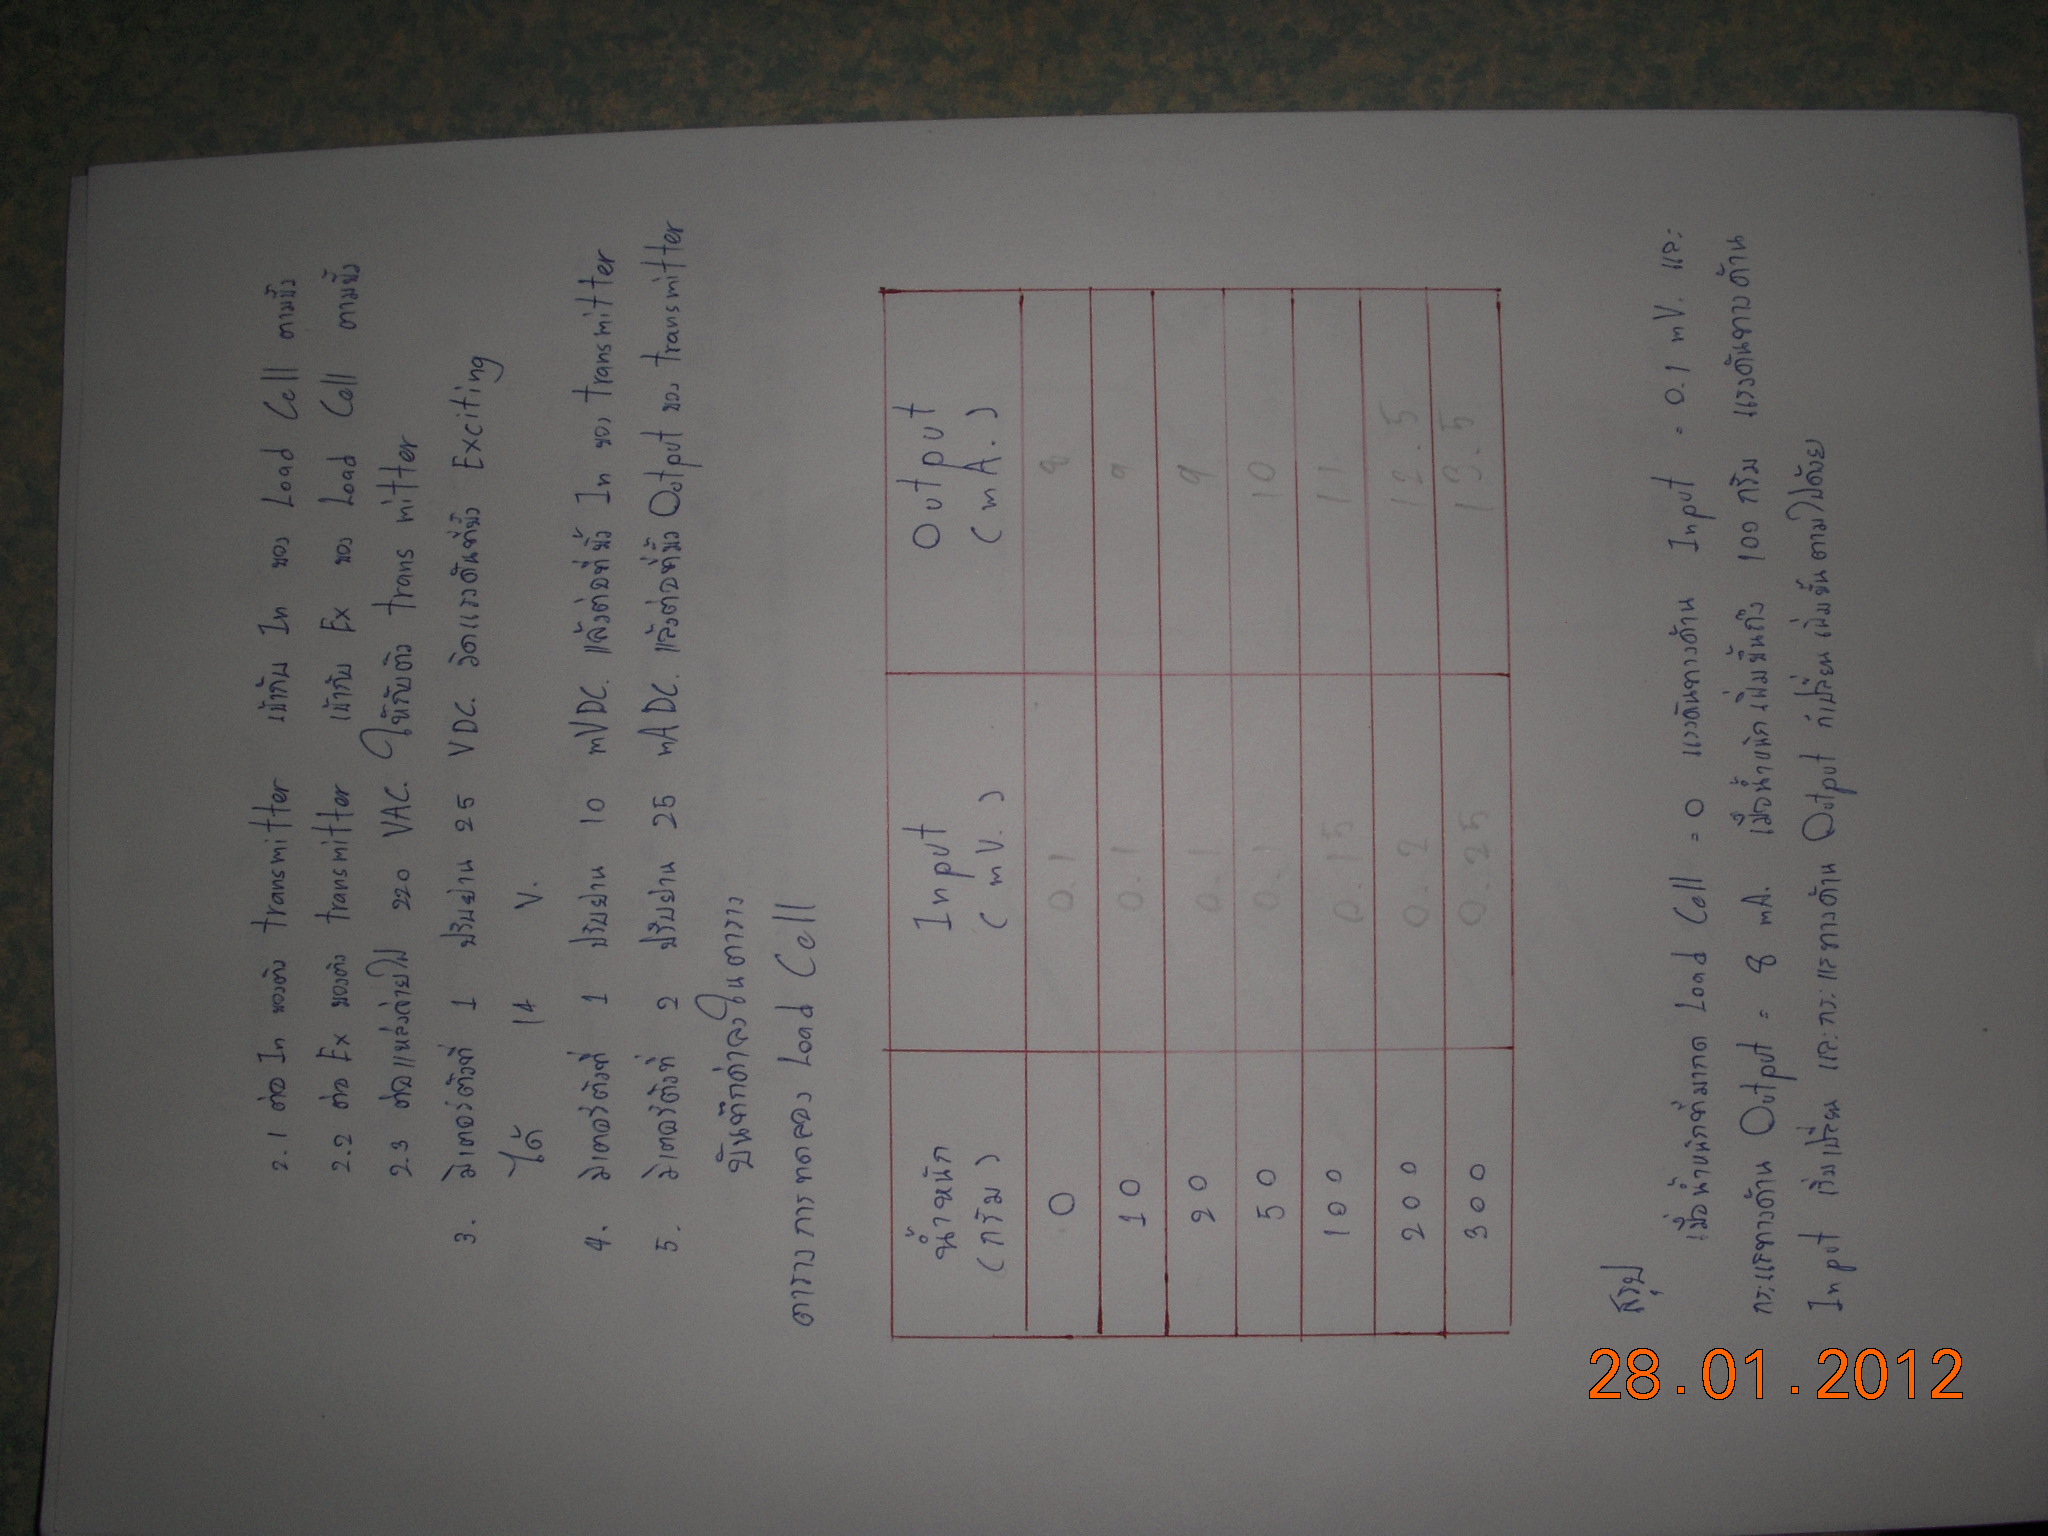 2.1 ต่อ In ของตัว transmitter เข้ากับ In ของ Load Cell ตามขั้ว
2.2 ต่อ Ex ของตัว transmitter เข้ากับ Ex ของ Load Cell ตามขั้ว
2.3 ต่อแหล่งจ่ายไฟ 220 VAC. ให้กับตัว transmitter
3. มิเตอร์ตัวที่ 1 ปรับย่าน 25 VDC. วัดแรงดันที่ขั้ว Exciting
ได้ 14 V.
4. มิเตอร์ตัวที่ 1 ปรับย่าน 10 mVDC. แล้วต่อที่ขั้ว In ของ transmitter
5. มิเตอร์ตัวที่ 2 ปรับย่าน 25 mADC. แล้วต่อที่ขั้ว Output ของ transmitter
บันทึกค่าลงในตาราง
ตารางการทดลอง Load Cell
น้ำหนัก Input Output
(กรัม) (mV.) (mA.)
0 0.1 8
10 0.1 9
20 0.1 9
50 0.1 10
100 0.15 11
200 0.2 12.5
300 0.25 13.5
สรุป
เมื่อน้ำหนักที่มากด Load Cell = 0 แรงดันทางด้าน Input = 0.1 mV. และ
กระแสทางด้าน Output = 8 mA. เมื่อน้ำหนักเพิ่มขึ้นถึง 100 กรัม แรงดันทางด้าน
Input เริ่มเปลี่ยน และกระแสทางด้าน Output ก็เปลี่ยนเพิ่มขึ้นตามไปด้วย
28.01.2012